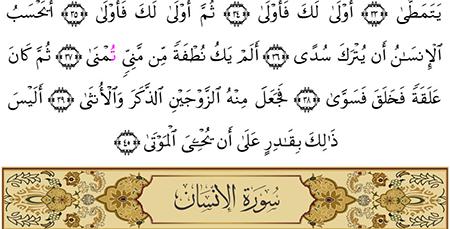 يَتَمَطَّىٰ ﴿٣٣﴾ أَوْلَىٰ لَكَ فَأَوْلَىٰ ﴿٣٤﴾ ثُمَّ أَوْلَىٰ لَكَ فَأَوْلَىٰ ﴿٣٥﴾ أَيَحْسَبُ
ٱلْإِنسَـٰنُ أَن يُتْرَكَ سُدًى ﴿٣٦﴾ أَلَمْ يَكُ نُطْفَةً مِّن مَّنِىٍّ تُمْنَىٰ ﴿٣٧﴾ ثُمَّ كَانَ
عَلَقَةً فَخَلَقَ فَسَوَّىٰ ﴿٣٨﴾ فَجَعَلَ مِنْهُ ٱلزَّوْجَيْنِ ٱلذَّكَرَ وَٱلْأُنثَىٰٓ ﴿٣٩﴾ أَلَيْسَ
ذَٰلِكَ بِقَـٰدِرٍ عَلَىٰٓ أَن يُحْـِۧىَ ٱلْمَوْتَىٰ ﴿٤٠﴾
سُورَةُ الإِنسَان